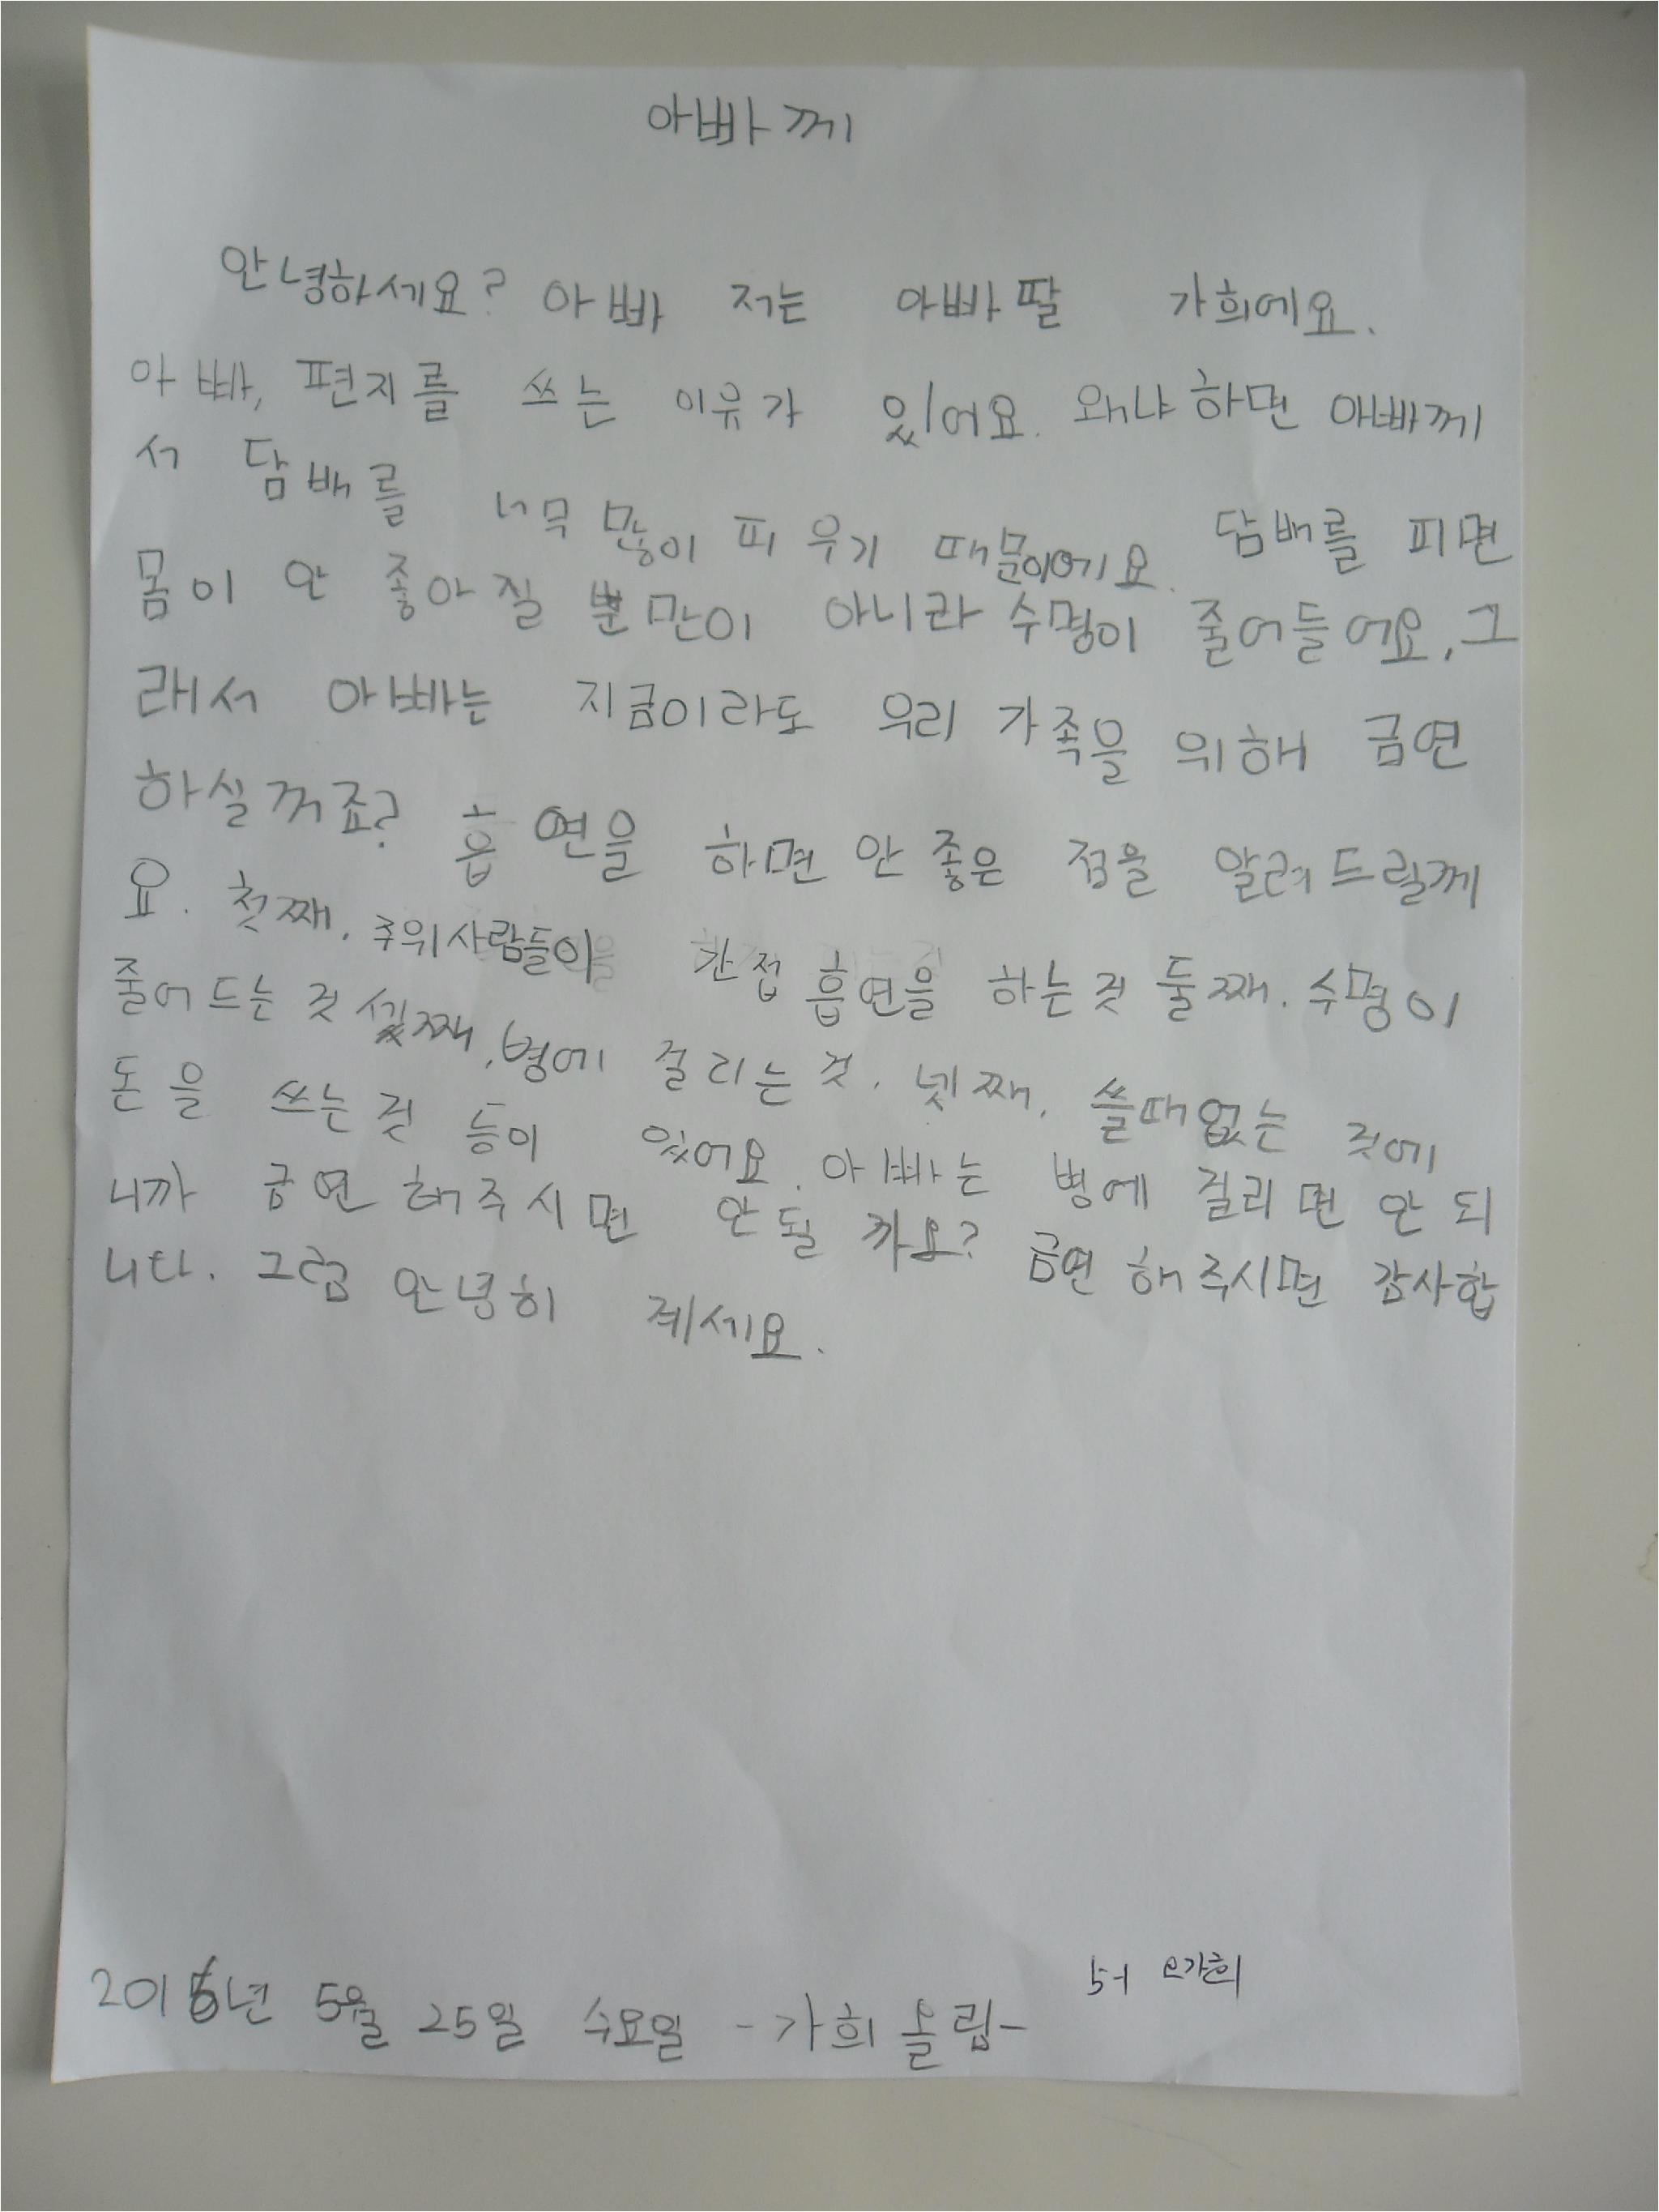 아빠께
안녕하세요? 아빠 저는 아빠딸 가희에요.
아빠, 편지를 쓰는 이유가 있어요. 왜냐하면 아빠께
서 담배를 너무 많이 피우기 때문이에요. 담배를 피면
몸이 안 좋아질 뿐만이 아니라 수명이 줄어들어요. 그
래서 아빠는 지금이라도 우리 가족을 위해 금연
하실꺼죠? 흡연을 하면 안 좋은 점을 알려드릴께
요. 첫째, 주위사람들이 간접 흡연을 하는것 둘째, 수명이
줄어드는 것 셋째, 병에 걸리는 것. 넷째, 쓸때없는 것에
돈을 쓰는것 등이 있어요. 아빠는 병에 걸리면 안 되
니까 금연해주시면 안될까요? 금연해주시면 감사합
니다. 그럼 안녕히 계세요.
2016년 5월 25일 수요일 -가희올림-
가희